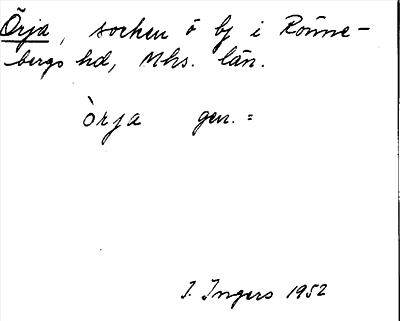 Örja, socken o by i Rönne-
bergs hd, Mhs. län.
òrja gen. =
I. Ingers 1952